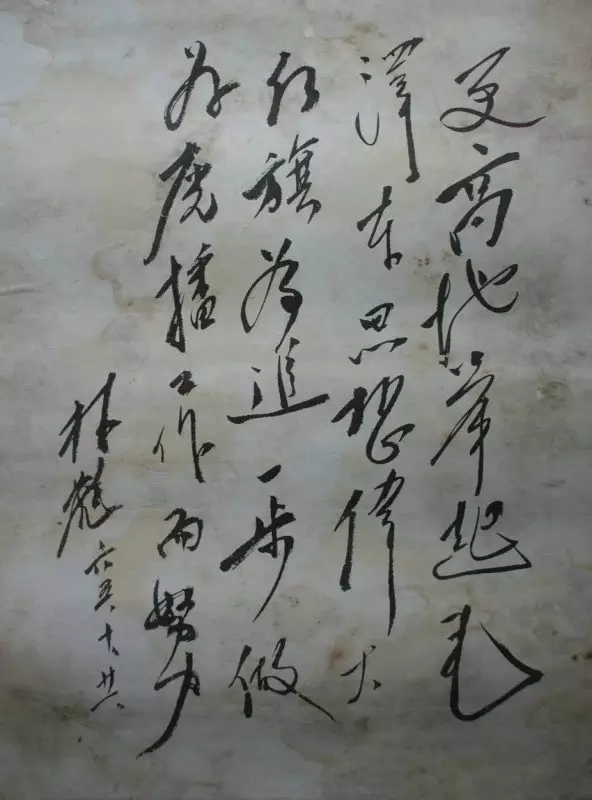 更高地举起毛
泽东思想偉大
红旗为進一步做
好廣播工作而努力
林彪
六五、十、廿六